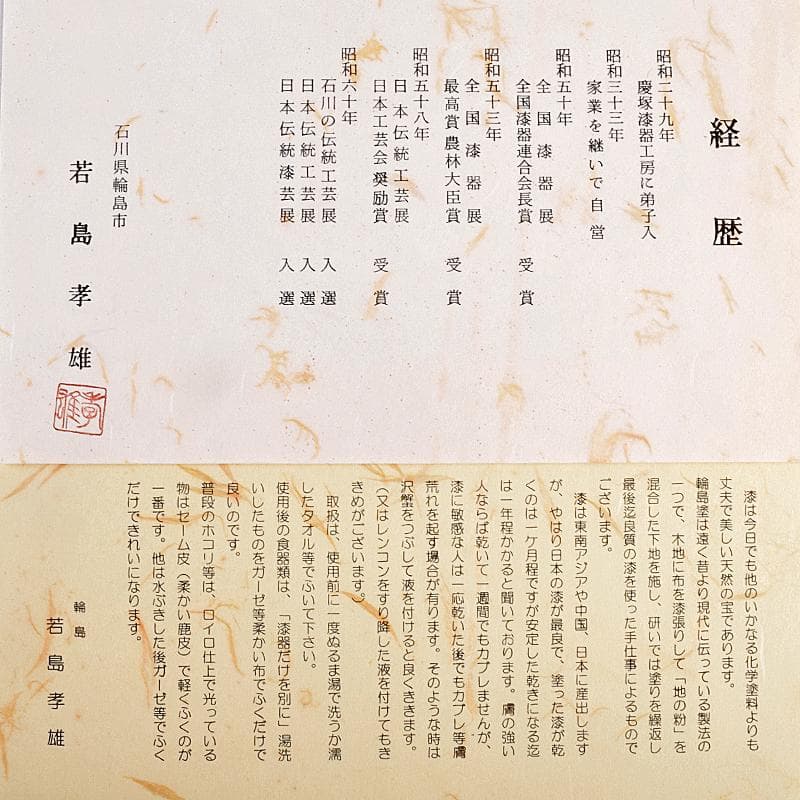 経歴
昭和二十九年
慶塚漆器工房に弟子入
昭和三十三年
家業を継いで自営
昭和五十年
全国漆器展
全国漆器連合会長賞 受賞
昭和五十三年
全国漆器展
最高賞農林大臣賞 受賞
昭和五十八年
日本伝統工芸展
日本工芸会奨励賞 受賞
昭和六十年
石川の伝統工芸展 入選
日本伝統工芸展 入選
日本伝統漆芸展 入選
石川県輪島市
若島孝雄
孝雄
漆は今日でも他のいかなる化学塗料よりも
丈夫で美しい天然の宝であります。
輪島塗は遠く昔より現代に伝っている製法の
一つで、木地に布を漆張りして「地の粉」を
混合した下地を施し、研いでは塗りを繰返し
最後迄良質の漆を使った手仕事によるもので
ございます。
漆は東南アジアや中国、日本に産出します
が、やはり日本の漆が最良で、塗った漆が乾
くのは一ケ月程ですが安定した乾きになる迄
は一年程かかると聞いております。膚の強い
人ならば乾いて一週間でもカブレませんが、
漆に敏感な人は一応乾いた後でもカブレ等膚
荒れを起す場合が有ります。そのような時は
沢蟹をつぶして液を付けると良くききます。
(又はレンコンをすり降した液を付けてもき
きめがございます。)
取扱は、使用前に一度ぬるま湯で洗うか濡
したタオル等でふいて下さい。
使用後の食器類は、「漆器だけを別に」湯洗
いしたものをガーゼ等柔かい布でふくだけで
良いのです。
普段のホコリ等は、ロイロ仕上で光っている
物はセーム皮(柔かい鹿皮)で軽くふくのが
一番です。他は水ぶきした後ガーゼ等でふく
だけできれいになります。
輪島
若島孝雄